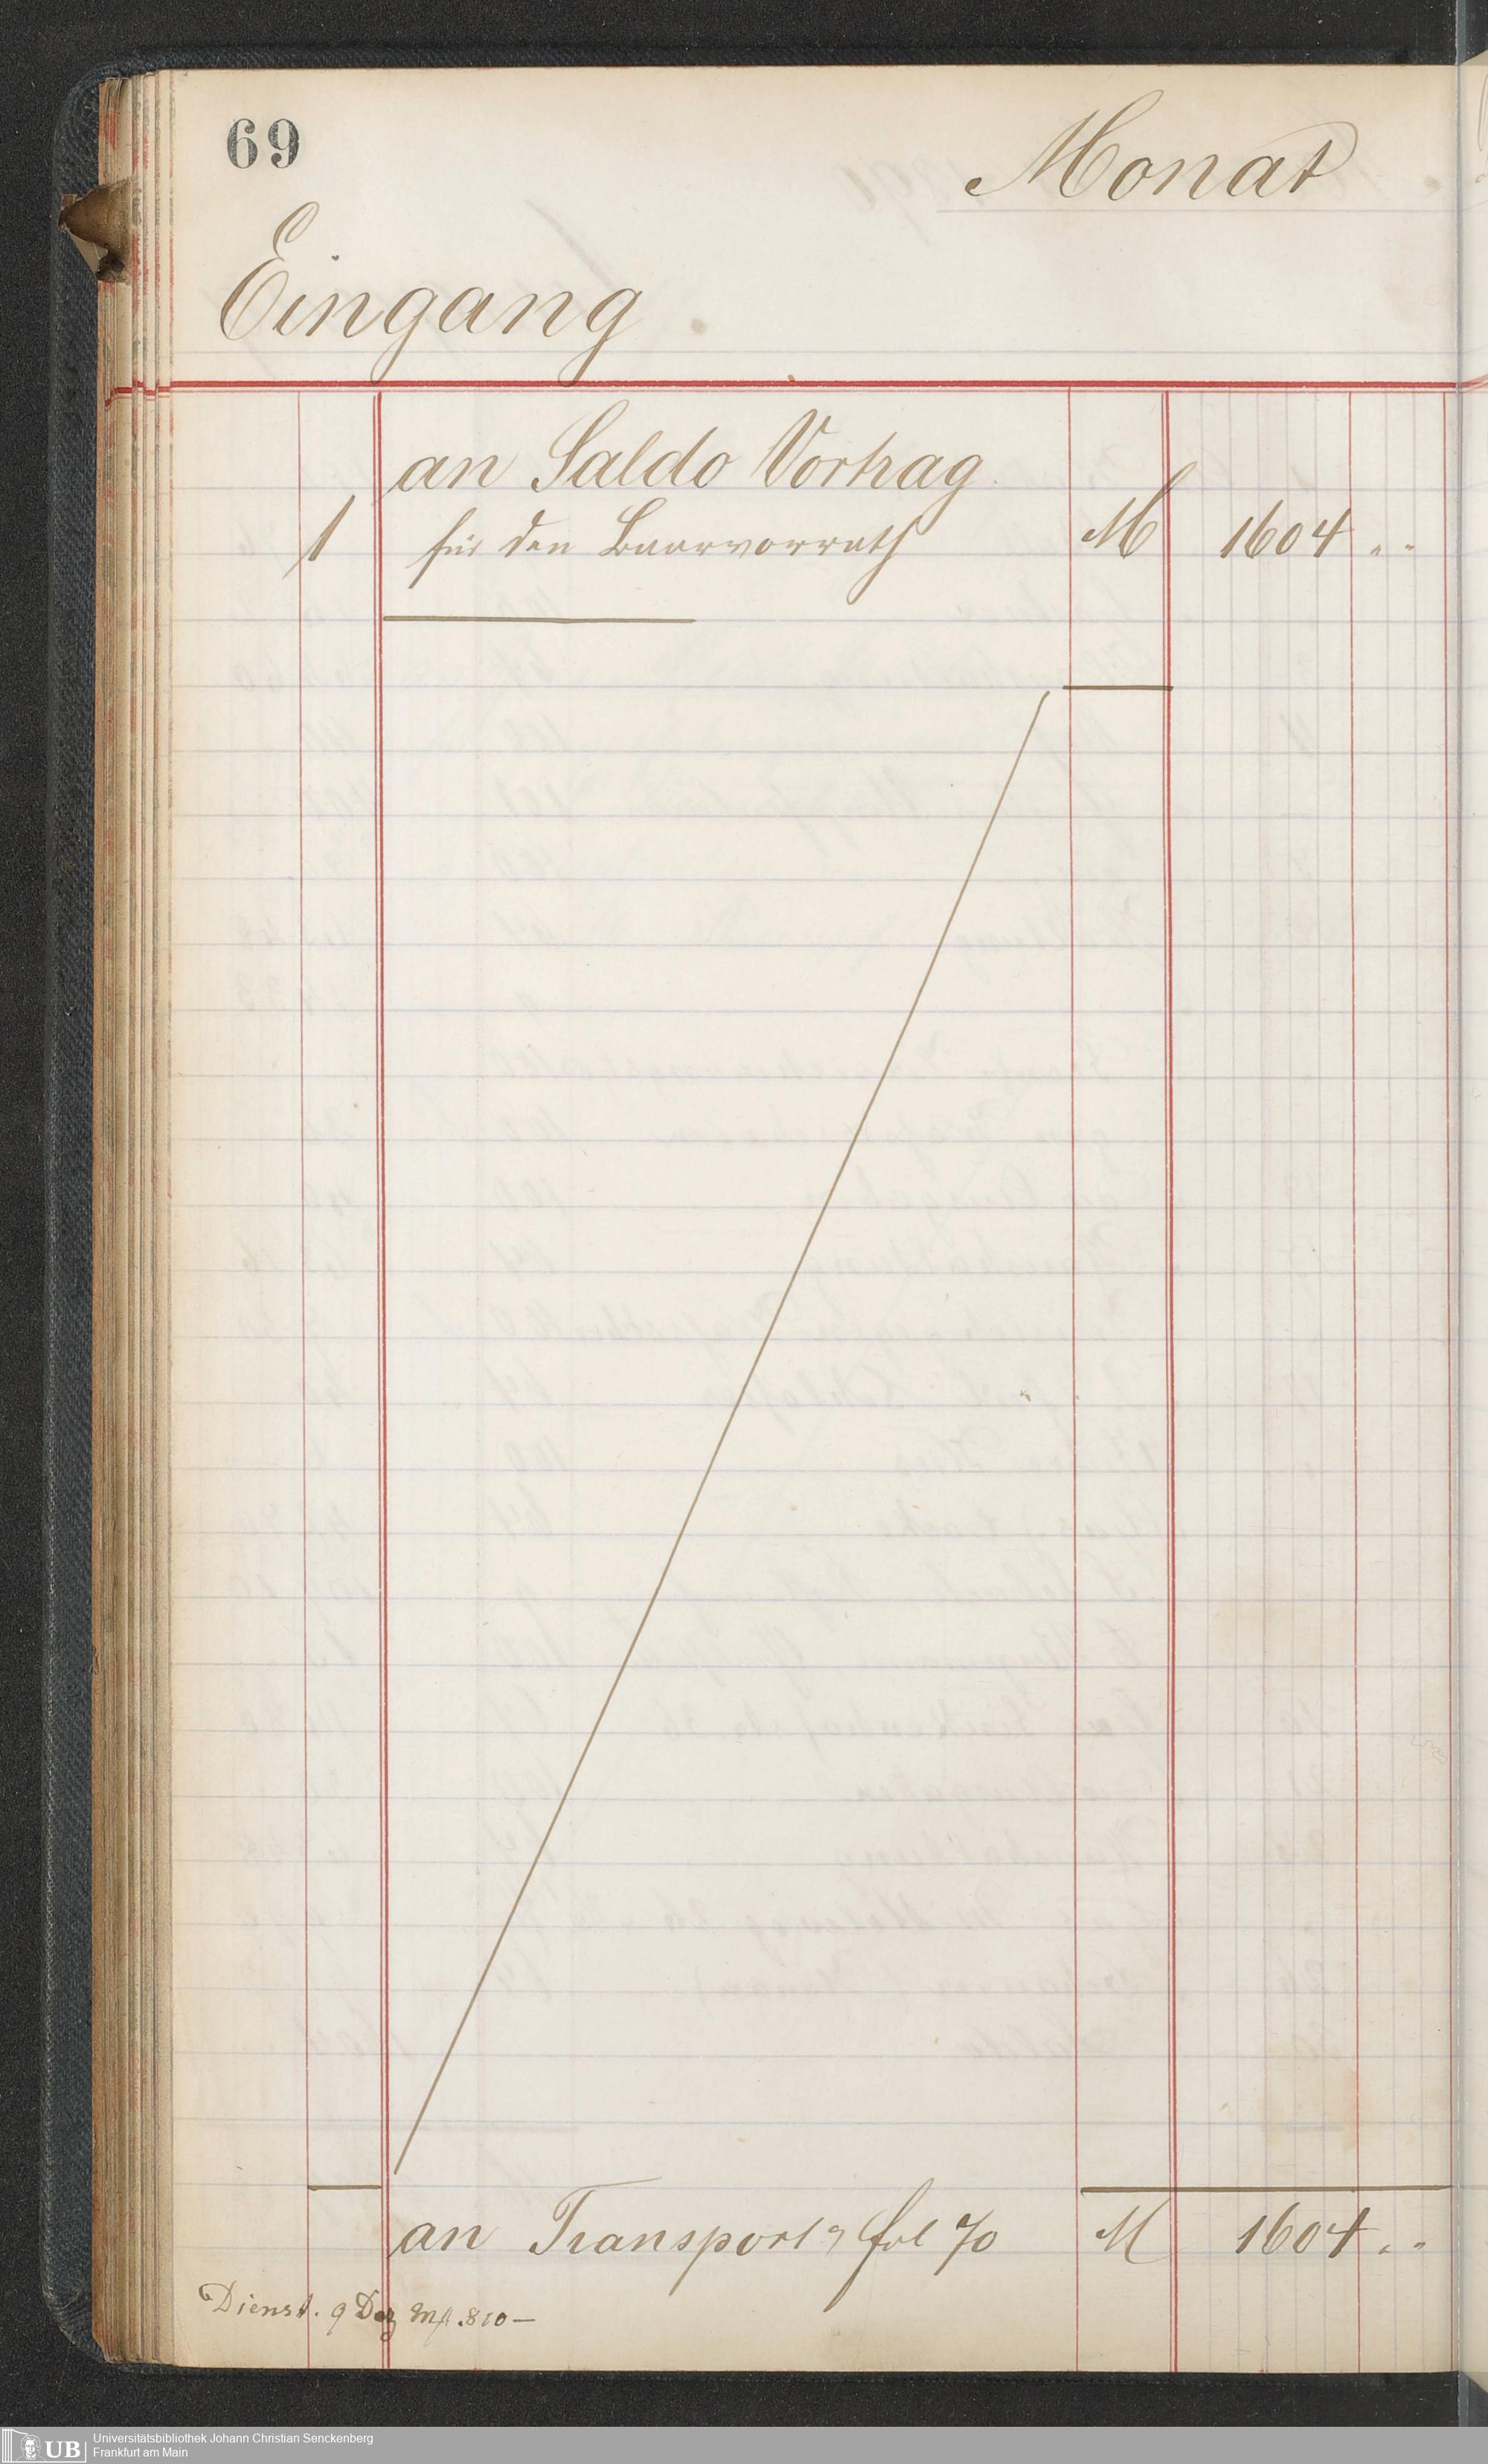 69
Monat
Eingang.
an Saldo Vortrag.
1 für den Baarvorrath M 1604 " "
an Transport a fol 70 M 1604 " "
Dienst. 9 Dez Mk. 810 —
UB Universitätsbibliothek Johann Christian Senckenberg
Frankfurt am Main